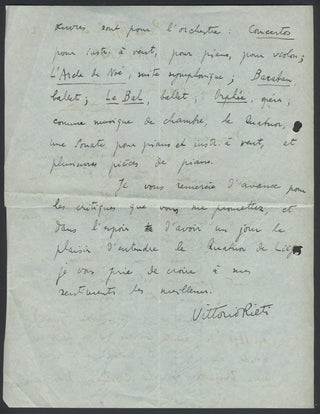 œuvres sont pour l'orchestre : Concertos
pour instr. à vent, pour piano, pour violon ;
L'Arche de Noé, suite symphonique ; Barabau
ballet ; Le Bal, ballet ; Orphée, opéra ;
comme musique de chambre, le Quatuor,
une Sonate pour piano et instr. à vent, et
plusieures pièces de piano.
Je vous remercie d'avance pour
les critiques que vous me promettez, et
dans l'espoir d'avoir un jour le
plaisir d'entendre le Quatuor de Liège
je vous prie de croire à mes
sentiments les meilleurs.
Vittorio Rieti